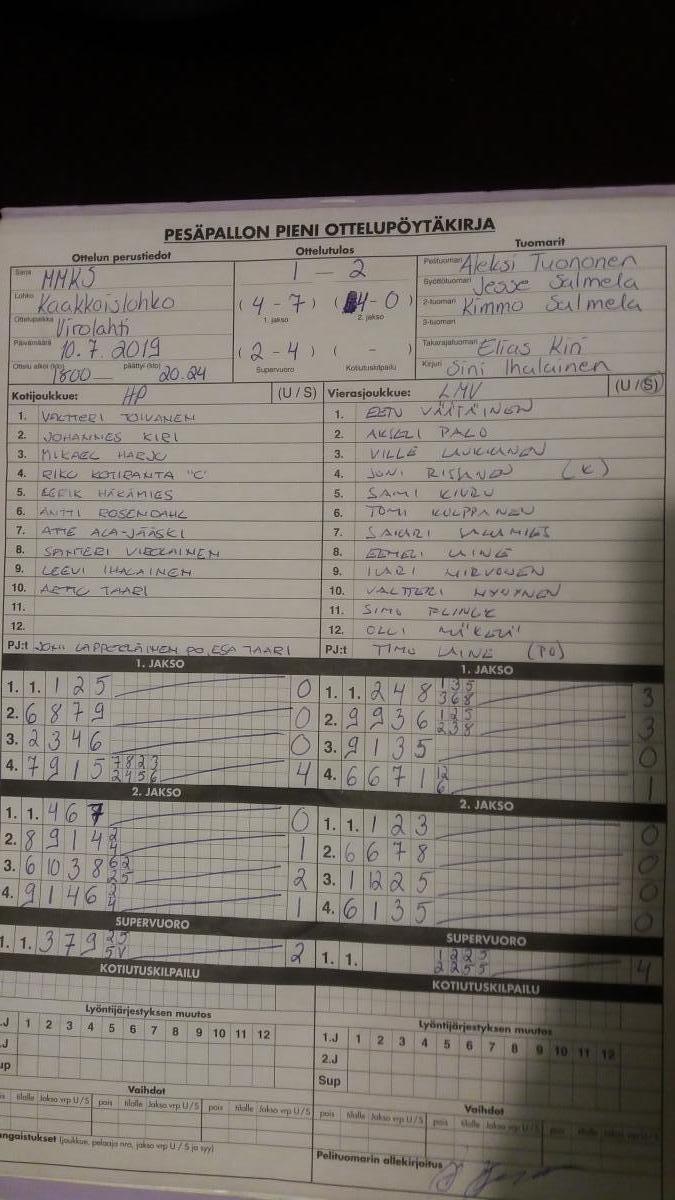 PESÄPALLON PIENI OTTELUPÖYTÄKIRJA
Ottelun perustiedot
Sarja MMKS
Lohko Kaakkoislohko
Ottelupaikka Virolahti
Päivämäärä 10.7.2019
Ottelu alkoi (klo) 1800 — päättyi (klo) 20.24
Ottelutulos
1 — 2
(4 - 7) (4 - 0)
1. jakso 2. jakso
(2 - 4) ( - )
Supervuoro Kotiutuskilpailu
Tuomarit
Pelituomari Aleksi Tuononen
Syöttötuomari Jesse Salmela
2-tuomari Kimmo Salmela
3-tuomari
Takarajatuomari Elias Kiri
Kirjuri Sini Ihalainen
Kotijoukkue: HP (U / S)
1. VALTTERI TOIVANEN
2. JOHANNES KIRI
3. MIKAEL HARJU
4. RIKU KOTIRANTA "C"
5. EERIK HÄKÄMIES
6. ANTTI ROSENDAHL
7. ATTE ALA-JÄÄSKI
8. SANTERI VIROLAINEN
9. LEEVI IHALAINEN
10. ARTTU TAARI
11.
12.
PJ:t JONI LAPPETELÄINEN PO, ESA TAARI
Vierasjoukkue: LMV (U / S)
1. EETU VÄÄTÄINEN
2. AKSELI PALO
3. VILLE LAUKKANEN
4. JONI RISSANEN (K)
5. SAMI KIURU
6. TOMI KULPPANEN
7. SAKARI SALAMIES
8. EEMELI LAINE
9. ILARI HIRVONEN
10. VALTTERI HYNYNEN
11. SIMO FLINCK
12. OLLI MÄKELÄ
PJ:t TIMO LAINE (PO)
1. JAKSO
1. 1. 1 2 5 0
2. 6 8 7 9 0
3. 2 3 4 6 0
4. 7 9 1 5 7823 2456 4
2. JAKSO
1. 1. 4 6 7 0
2. 8 9 1 4 2 4 1
3. 6 10 3 8 62 25 2
4. 9 1 4 6 1
SUPERVUORO
1. 1. 3 7 9 25 5V 2
KOTIUTUSKILPAILU
1. JAKSO
1. 1. 2 4 8 135 368 3
2. 9 9 3 6 125 238 3
3. 9 1 3 5 0
4. 6 6 7 1 12 6 1
2. JAKSO
1. 1. 1 2 3 0
2. 6 6 7 8 0
3. 1 12 2 5 0
4. 6 1 3 5 0
SUPERVUORO
1. 1. 1225 2255 4
KOTIUTUSKILPAILU
Lyöntijärjestyksen muutos
.J 1 2 3 4 5 6 7 8 9 10 11 12
.J
up
Vaihdot
pois tilalle Jakso vrp U / S pois tilalle Jakso vrp U / S pois tilalle Jakso vrp U / S
angaistukset (joukkue, pelaaja nro, jakso vrp U / S ja syy)
Lyöntijärjestyksen muutos
1.J 1 2 3 4 5 6 7 8 9 10 11 12
2.J
Sup
Vaihdot
pois tilalle Jakso vrp U / S pois tilalle Jakso vrp U / S pois tilalle Jakso vrp U / S
Pelituomarin allekirjoitus